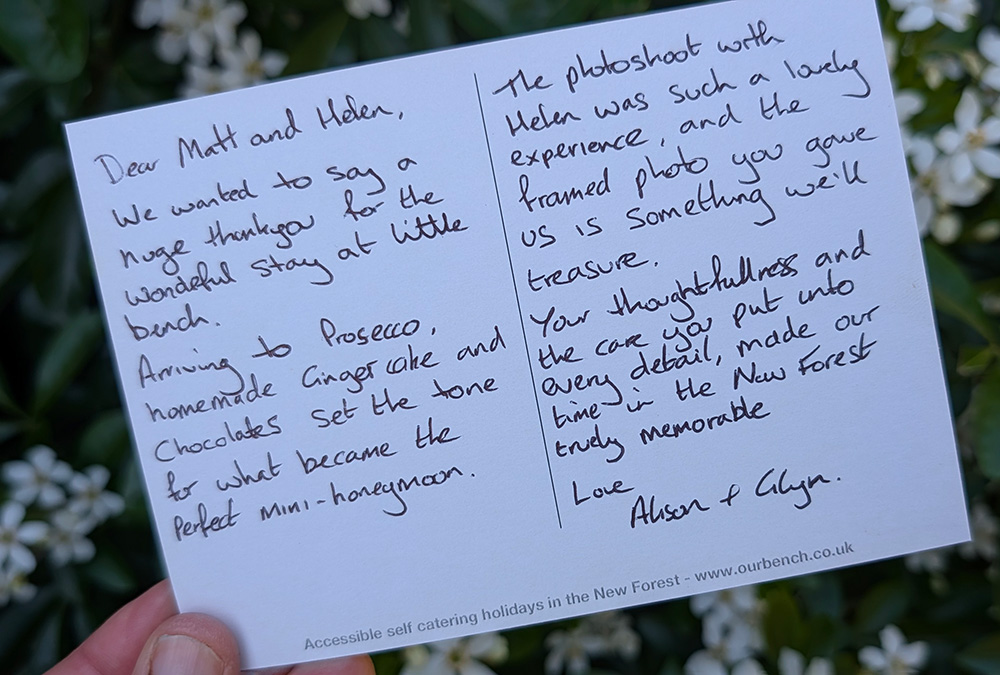 Dear Matt and Helen,
We wanted to say a
huge thankyou for the
wonderful stay at little
bench.
Arriving to Prosecco,
homemade Ginger cake and
Chocolates set the tone
for what became the
Perfect mini-honeymoon.
The photoshoot with
Helen was such a lovely
experience, and the
framed photo you gave
us is something we'll
treasure.
Your thoughtfullness and
the care you put into
every detail, made our
time in the New Forest
truely memorable
Love
Alison + Glyn.
Accessible self catering holidays in the New Forest - www.ourbench.co.uk